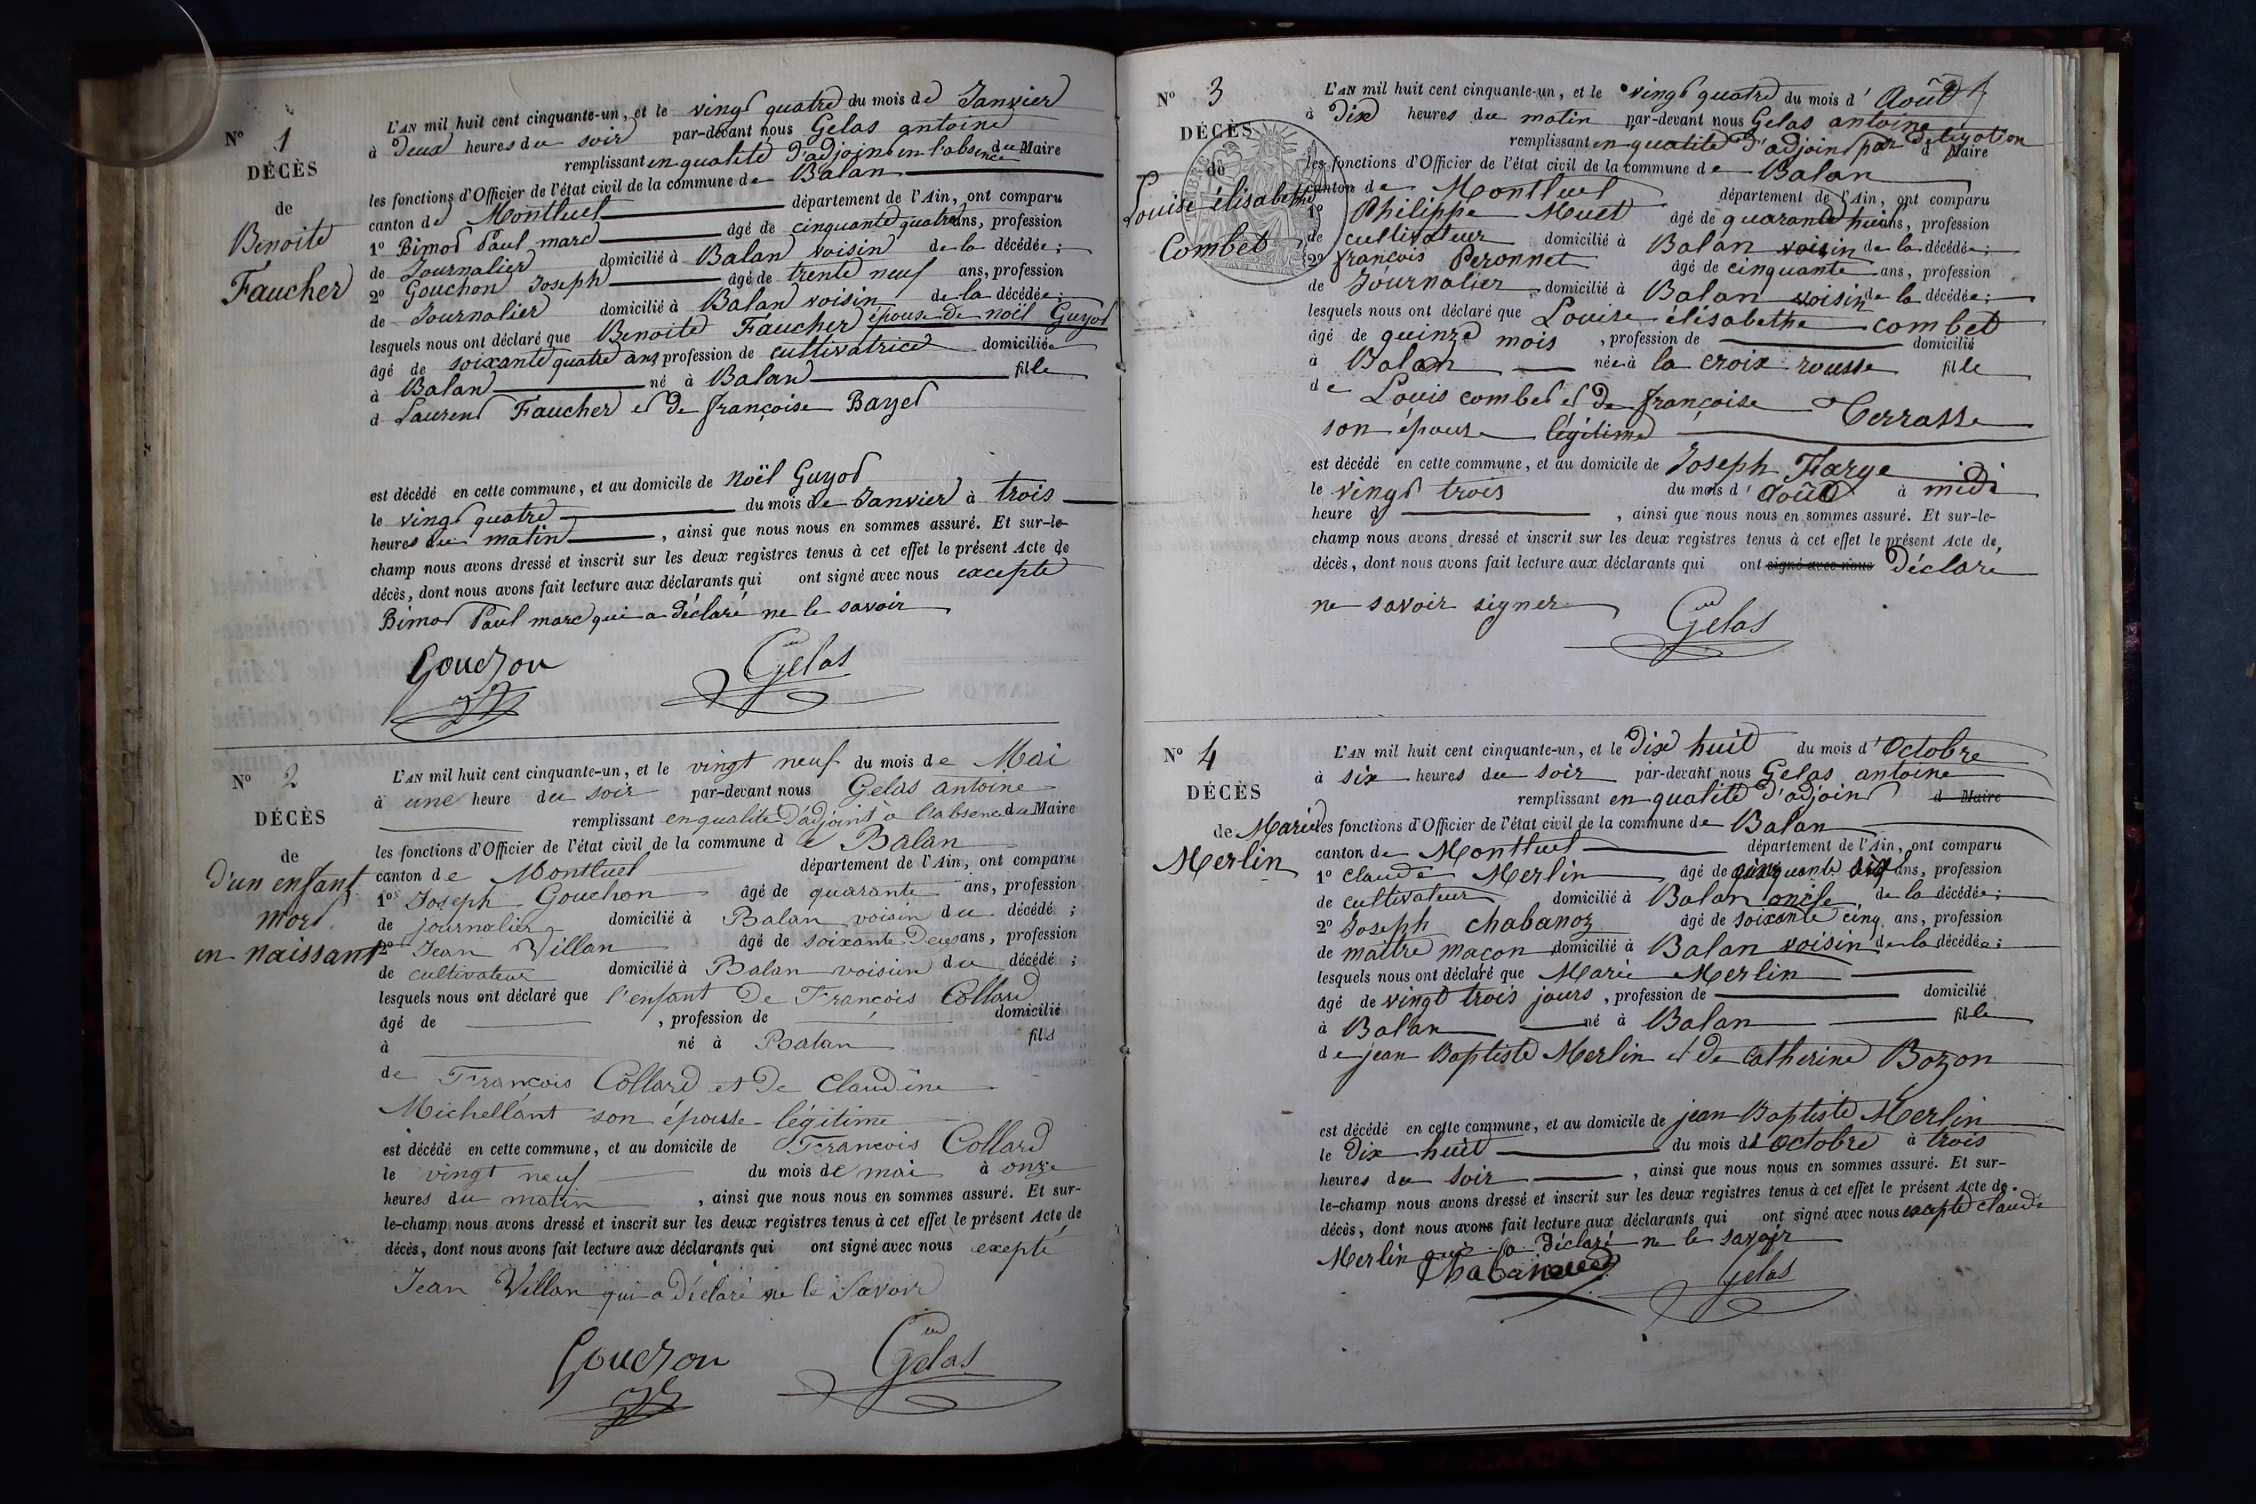 N° 1
DÉCÈS
de
Benoite
Faucher
L'AN mil huit cent cinquante-un, et le vingt quatre du mois de Janvier
à Deux heures du soir par-devant nous Gelas antoine
remplissant en qualité d'adjoint en l'absence du Maire
les fonctions d'Officier de l'état civil de la commune de Balan
canton de Montluel département de l'Ain, ont comparu
1° Bimot Paul marc âgé de cinquante quatre ans, profession
de Journalier domicilié à Balan voisin de la décédée;
2° Gouchon Joseph âgé de trente neuf ans, profession
de Journalier domicilié à Balan voisin de la décédée;
lesquels nous ont déclaré que Benoite Faucher épouse de noël Guyot
âgé de soixante quatre ans profession de cultivatrice domiciliée
à Balan né à Balan fille
d Laurent Faucher et de françoise Bayet
est décédé en cette commune, et au domicile de Noël Guyot
le vingt quatre du mois de Janvier à trois
heures du matin, ainsi que nous nous en sommes assuré. Et sur-le-
champ nous avons dressé et inscrit sur les deux registres tenus à cet effet le présent Acte de
décès, dont nous avons fait lecture aux déclarants qui ont signé avec nous excepte
Bimot Paul marc qui a déclaré ne le savoir
Gouchon Gelas
N° 2
DÉCÈS
de
d'un enfant
mort
en naissant
L'AN mil huit cent cinquante-un, et le vingt neuf du mois de Mai
à une heure du soir par-devant nous Gelas antoine
remplissant en qualité d'adjoint à l'absence du Maire
les fonctions d'Officier de l'état civil de la commune de Balan
canton de Montluel département de l'Ain, ont comparu
1° Joseph Gouchon âgé de quarante ans, profession
de journalier domicilié à Balan voisin du décédé;
2° Jean Villan âgé de soixante Deux ans, profession
de cultivateur domicilié à Balan voisin du décédé;
lesquels nous ont déclaré que l'enfant De François Collard
âgé de , profession de domicilié
à né à Balan fils
de François Collard et De Claudine
Michellant son épouse légitime
est décédé en cette commune, et au domicile de François Collard
le vingt neuf du mois de mai à onze
heures du matin, ainsi que nous nous en sommes assuré. Et sur-
le-champ nous avons dressé et inscrit sur les deux registres tenus à cet effet le présent Acte de
décès, dont nous avons fait lecture aux déclarants qui ont signé avec nous excepté
Jean Villan qui a Déclaré ne le Savoir
Gouchon Gelas
N° 3
DÉCÈS
de
Louise élisabethe
Combet
L'AN mil huit cent cinquante-un, et le vingt quatre du mois d'Août
à Dix heures du matin par-devant nous Gelas antoine
remplissant en qualité d'adjoint par déligation d Maire
les fonctions d'Officier de l'état civil de la commune de Balan
canton de Montluel département de l'Ain, ont comparu
1° Philippe Muet âgé de quarante huit ans, profession
de cultivateur domicilié à Balan voisin de la décédée;
2° françois Peronnet âgé de cinquante ans, profession
de Journalier domicilié à Balan voisin de la décédée;
lesquels nous ont déclaré que Louise élisabethe combet
âgé de quinze mois, profession de domicilié
à Balan née à la croix rousse fille
de Louis combet et De françoise Terrasse
son épouse légitime
est décédé en cette commune, et au domicile de Joseph Farge
le vingt trois du mois d'août à midi
heure d , ainsi que nous nous en sommes assuré. Et sur-le-
champ nous avons dressé et inscrit sur les deux registres tenus à cet effet le présent Acte de
décès, dont nous avons fait lecture aux déclarants qui ont signé avec nous Déclare
ne savoir signer
Gelas
N° 4
DÉCÈS
de Marie
Merlin
L'AN mil huit cent cinquante-un, et le Dix huit du mois d'Octobre
à six heures du soir par-devant nous Gelas antoine
remplissant en qualité d'adjoint d Maire
les fonctions d'Officier de l'état civil de la commune de Balan
canton de Montluel département de l'Ain, ont comparu
1° Claude Merlin âgé de cinquante six ans, profession
de cultivateur domicilié à Balan oncle de la décédée;
2° Joseph chabanoz âgé de soixante cinq ans, profession
de maître maçon domicilié à Balan voisin de la décédée;
lesquels nous ont déclaré que Marie Merlin
âgé de vingt trois jours, profession de domicilié
à Balan né à Balan fille
de jean Baptiste Merlin et de Catherine Bozon
est décédé en cette commune, et au domicile de jean Baptiste Merlin
le Dix huit du mois d'Octobre à trois
heures du soir, ainsi que nous nous en sommes assuré. Et sur-
le-champ nous avons dressé et inscrit sur les deux registres tenus à cet effet le présent Acte de
décès, dont nous avons fait lecture aux déclarants qui ont signé avec nous excepté claude
Merlin qui a Déclaré ne le savoir
Gelas